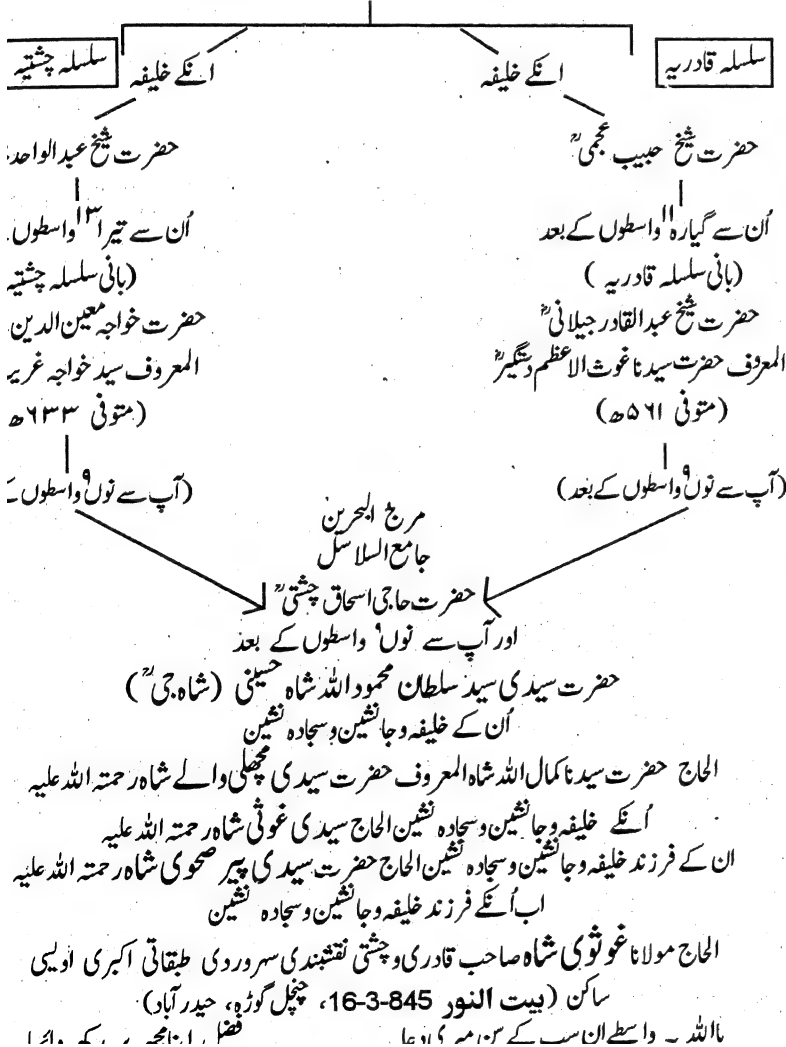 سلسلہ قادریہ
انکے خلیفہ
حضرت شیخ حبیب عجمیؒ
اُن سے گیارہ ۱۱ واسطوں کے بعد
(بانی سلسلہ قادریہ )
حضرت شیخ عبدالقادر جیلانیؒ
المعروف حضرت سیدنا غوث الاعظم دستگیرؒ
(متوفی ۵۶۱ھ)
(آپ سے نوں ۹ واسطوں کے بعد)
سلسلہ چشتیہ
انکے خلیفہ
حضرت شیخ عبدالواحد
اُن سے تیرا ۱۳ واسطوں
(بانی سلسلہ چشتیہ
حضرت خواجہ معین الدین
المعروف سید خواجہ غریب
(متوفی ۶۳۳ھ
(آپ سے نوں ۹ واسطوں کے
مرج البحرین
جامع السلاسل
حضرت حاجی اسحاق چشتیؒ
اور آپ سے نوں ۹ واسطوں کے بعد
حضرت سیدی سید سلطان محمود اللہ شاہ حسینی (شاہ جیؒ)
اُن کے خلیفہ و جانشین و سجادہ نشین
الحاج حضرت سیدنا کمال اللہ شاہ المعروف حضرت سیدی مچھلی والے شاہ رحمتہ اللہ علیہ
اُنکے خلیفہ و جانشین و سجادہ نشین الحاج سیدی غوثی شاہ رحمتہ اللہ علیہ
ان کے فرزند خلیفہ و جانشین و سجادہ نشین الحاج حضرت سیدی پیر صحوی شاہ رحمتہ اللہ علیہ
اب اُنکے فرزند خلیفہ و جانشین و سجادہ نشین
الحاج مولانا غوثوی شاہ صاحب قادری و چشتی نقشبندی سہروردی طبقاتی اکبری اویسی
ساکن (بیت النور 16-3-845، چنچل گوڑہ، حیدرآباد)
یااللہ واسطے ان سب کے سن میری دعا